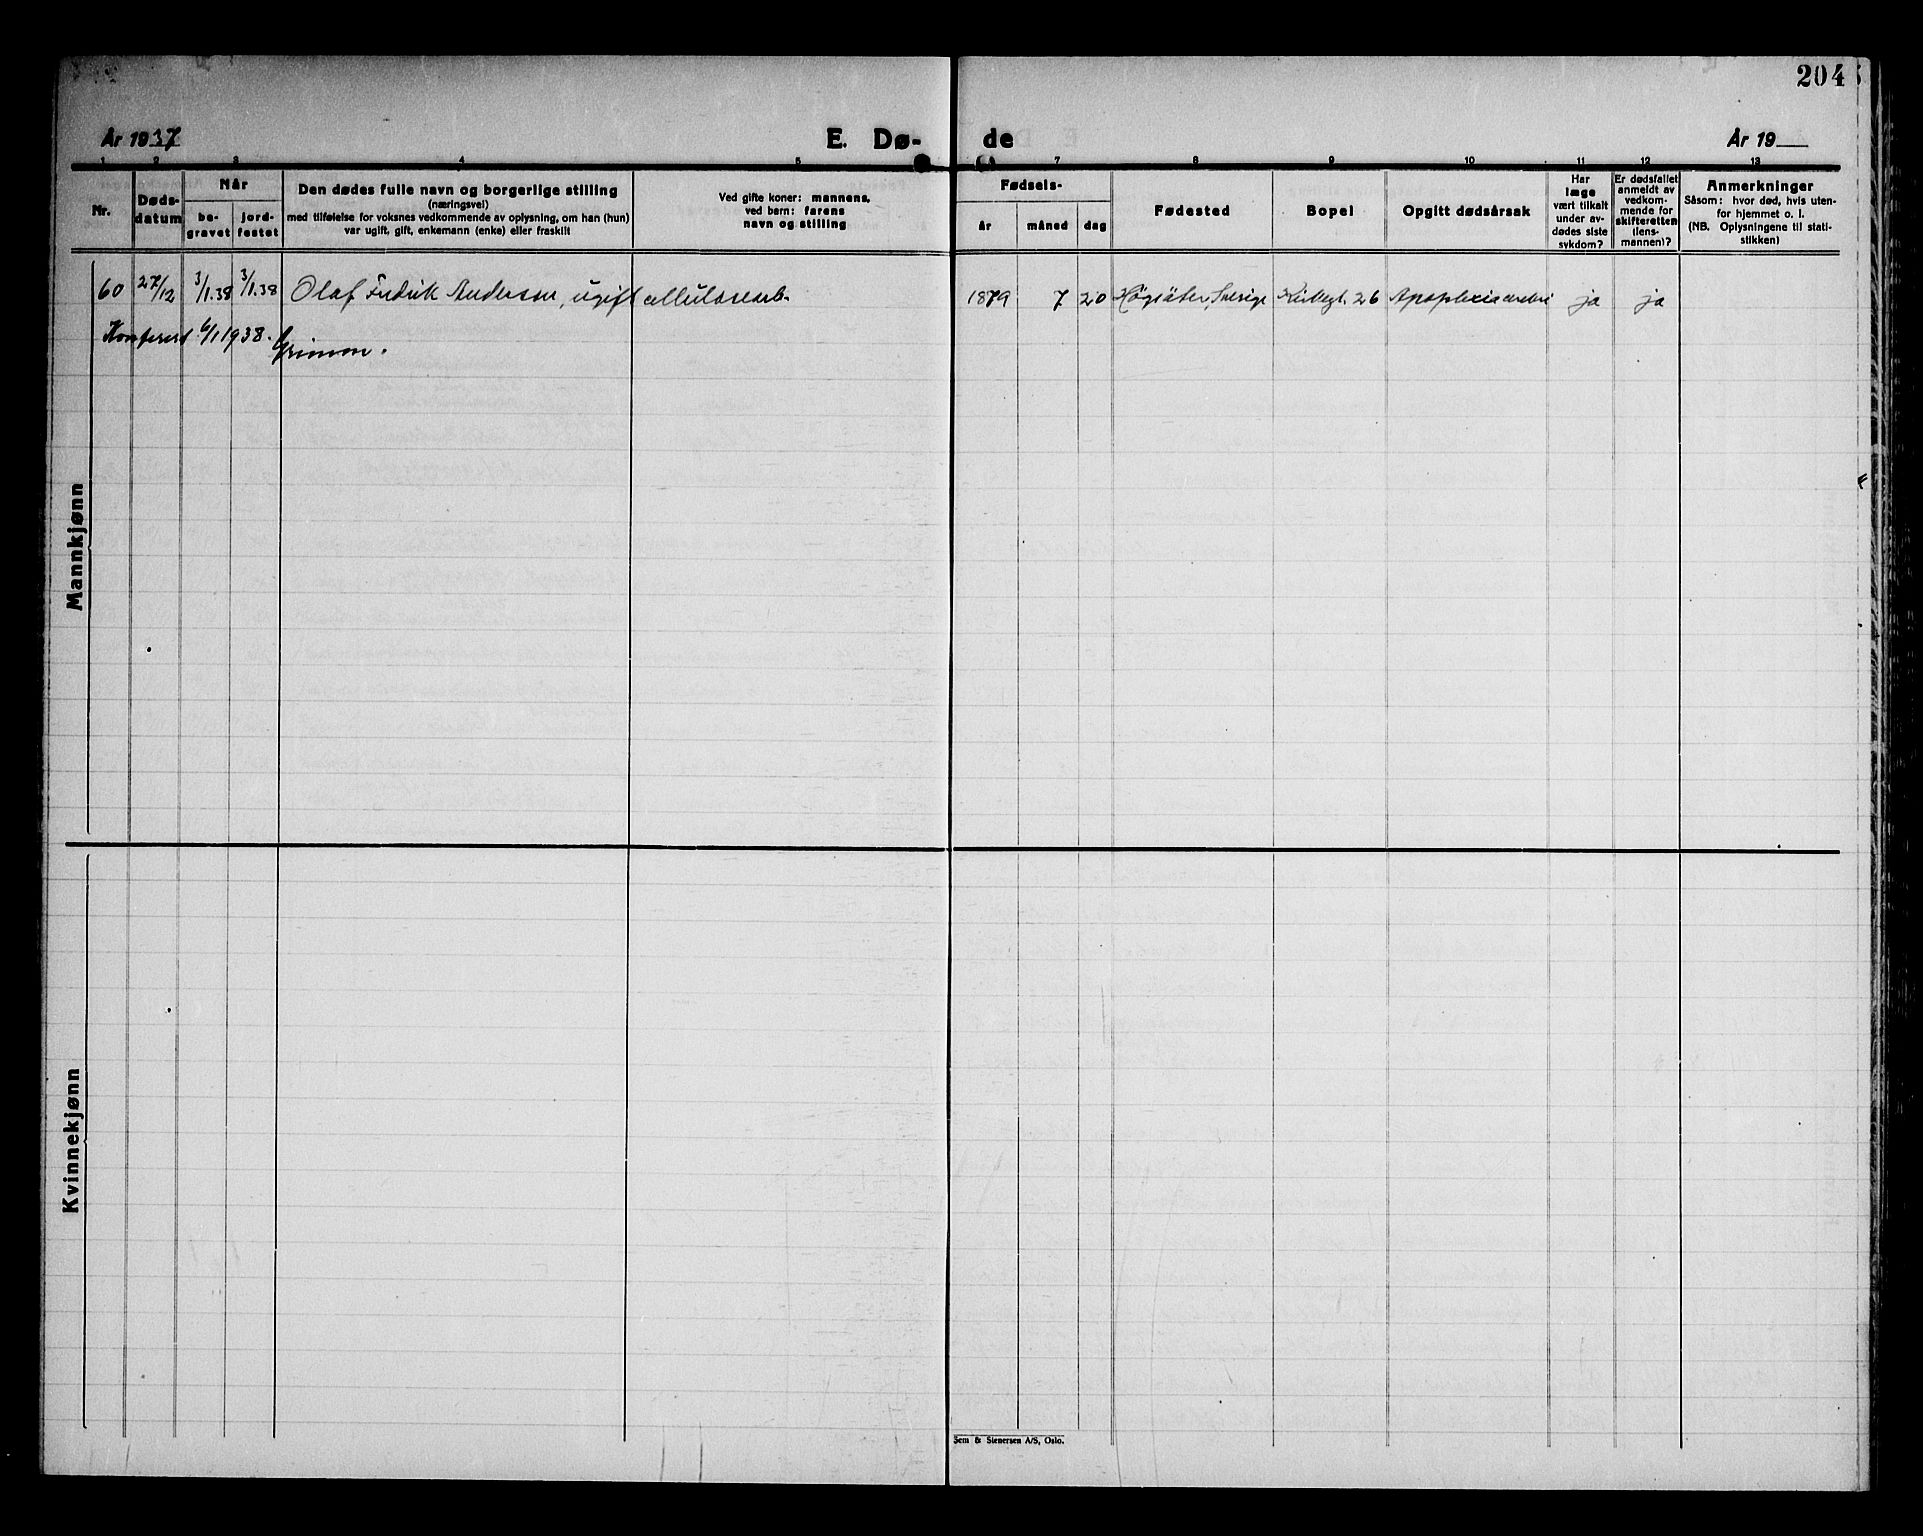 204
År 1937 E. Dø- de År 19
1 2 3 4 5 7 8 9 10 11 12 13
Nr.
Døds-
datum
Når
be-
gravet
jord-
festet
Den dødes fulle navn og borgerlige stilling
(næringsvei)
med tilføielse for voksnes vedkommende av oplysning, om han (hun)
var ugift, gift, enkemann (enke) eller fraskilt
Ved gifte koner: mannens,
ved barn: farens
navn og stilling
Fødsels-
år måned dag
Fødested
Bopel
Opgitt dødsårsak
Har
læge
vært tilkalt
under av-
dødes siste
sykdom?
Er dødsfallet
anmeldt av
vedkom-
mende for
skifteretten
(lens-
mannen)?
Anmerkninger
Såsom: hvor død, hvis uten-
for hjemmet o. l.
(NB. Oplysningene til stati-
stikken)
60 27/12 3/1.38 3/1.38 Olaf Fredrik Anderson, ugift cellulosearb. 1879 7 20 Högsäter, Sverige Kirkegt. 26 Apoplexia cerebri ja ja
Konferert 6/1 1938. Grimm.
Mannkjønn
Kvinnekjønn
Sem & Stenersen A/S, Oslo.